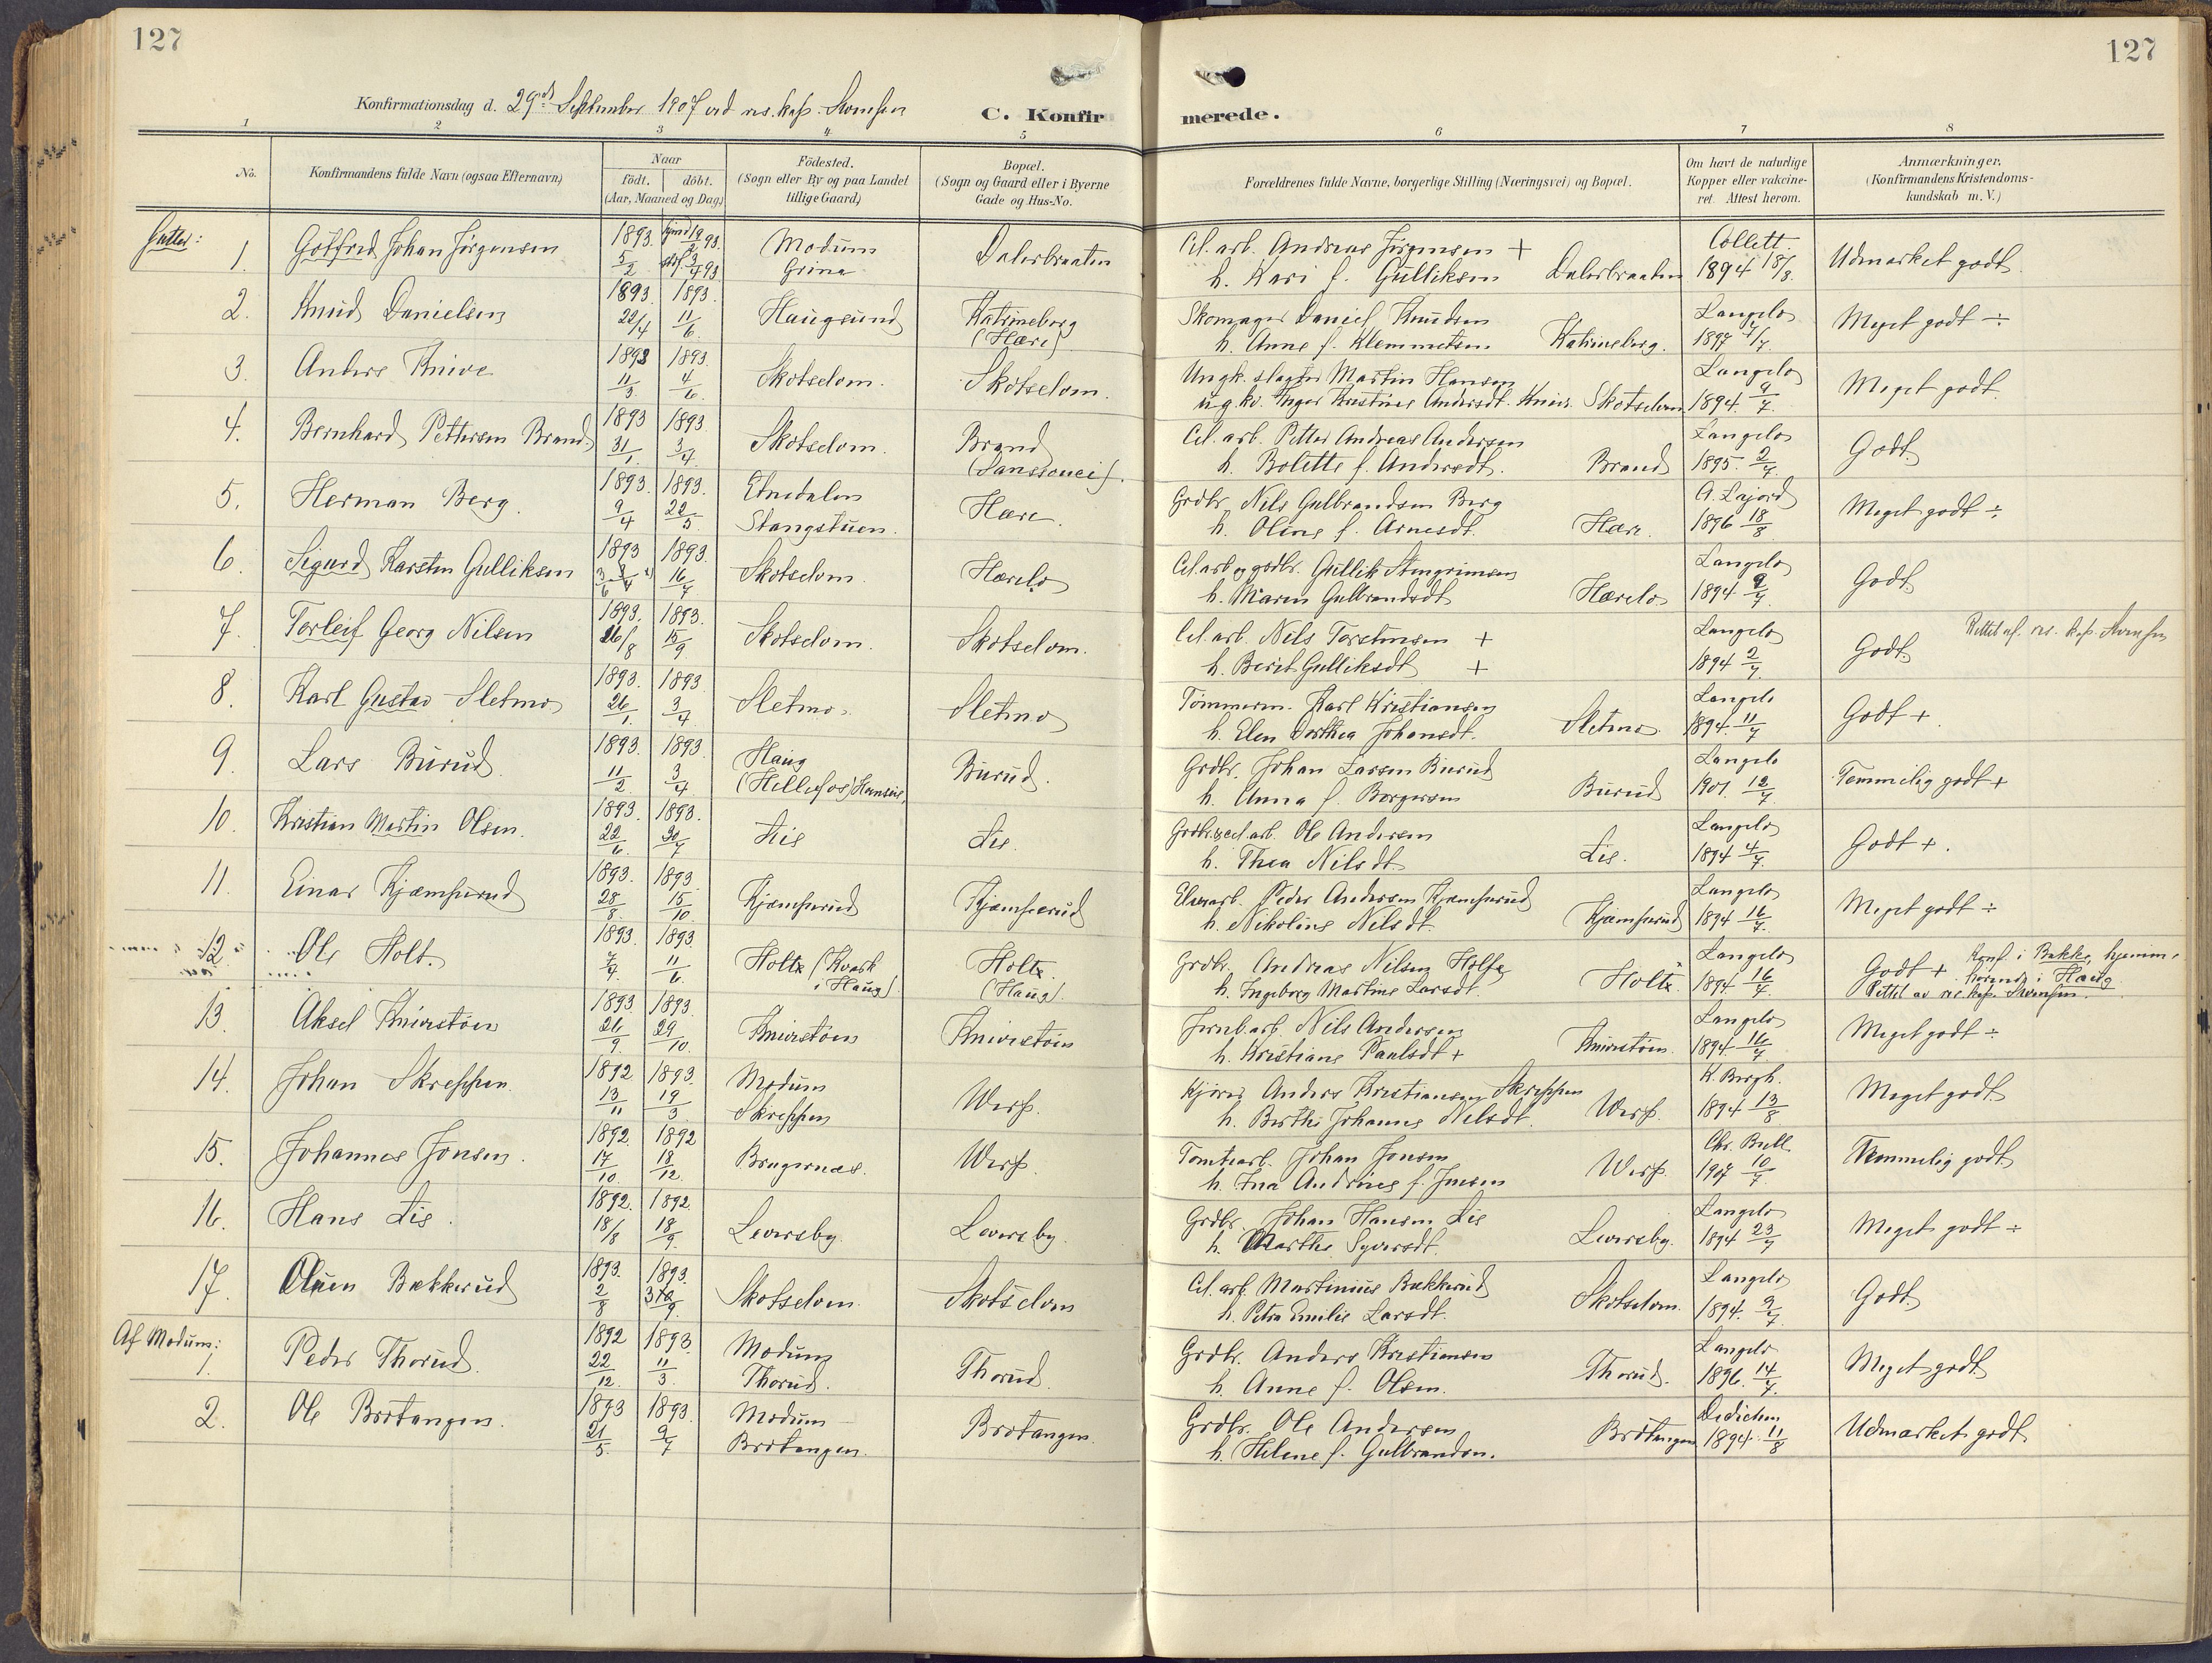 127
127
Konfirmationsdag d. 29de September 1907 ved res. kap.
C. Konfirmerede.
1 2 3 4 5 6 7 8
No.
Konfirmandens fulde Navn (ogsaa Efternavn)
Naar
født. døbt.
(Aar, Maaned og Dag)
Födested.
(Sogn eller By og paa Landet
tillige Gaard)
Bopæl.
(Sogn og Gaard eller i Byerne
Gade og Hus-No.
Forældrenes fulde Navne, borgerlige Stilling (Næringsvei) og Bopæl.
Om havt de naturlige
Kopper eller vakcine-
ret. Attest herom.
Anmærkninger.
(Konfirmandens Kristendoms-
kundskab m. V.)
Gutter:
1. Gotfred Johan Jörgensen 1893 5/2 hjmd 19/2 93 stdf 3/4 93 Modum Grina Dalerbraaten Cel. arb. Andreas Jörgensen + h. Kari f. Gulliksen Dalerbraaten Collett. 1894 18/8 Udmærket godt.
2. Knud Danielsen 1893 22/4 1893 11/6 Haugsund Katrineborg (Hære) Skomager Daniel Knudsen h. Anne f. Klemmetsen Katrineborg. Langelo 1897 7/7 Meget godt ÷
3. Anders Knive 1893 11/3 1893 4/6 Skotselven. Skotselven. Ungk. slagter Martin Hansen u g. kv. Inger Kristine Andersdt. Knive. Skotselven Langelo 1894 9/7 Meget godt.
4. Bernhard Pettersen Brand 1893 31/1 1893 3/4 Skotselven. Brand (Sanssouci). Cel. arb. Petter Andreas Andersen h. Bolette f. Andersdt. Brand Langelo 1895 2/7 Godt
5. Herman Berg. 1893 9/4 1893 22/5 Etnedalen Stangstuen. Hære. Grdbr. Nils Gulbrandsen Berg h. Oline f. Arnesdt. Hære. A. Lajord 1896 18/8 Meget godt ÷
6. Sigurd Karsten Gulliksen 1893 1893 16/7 Skotselven. Hærelo Cel. arb og grdbr. Gullik Stengrimsen h. Maren Gulbrandsdt Hærelo Langelo 1894 9/7 Godt
7. Torleif Georg Nilsen 1893 26/8 1893 15/9 Skotselven. Skotselven. Cel. arb. Nils Torstensen + h. Berit Gulliksdt + Langelo 1894 2/7 Godt Rettet af res. kap.
8. Karl Gustav Sletmo 1893 26/1 1893 3/4 Sletmo. Sletmo Tömmerm. Karl Kristiansen h. Elen Dorthea Johansdt. Sletmo Langelo 1894 11/7 Godt +.
9. Lars Burud 1893 11/2 1893 3/4 Haug (Hellefos) Burud. Grdbr. Johan Larsen Burud h. Anna f. Borgersen Burud Langelo 1901 12/7 Temmelig godt +
10. Kristian Martin Olsen. 1893 22/6 1893 30/7 Lie Lie. Grdbr. & cel. arb. Ole Andersen h. Thea Nilsdt. Lie. Langelo 1894 4/7 Godt +.
11. Einar Kjæmperud 1893 28/8 1893 15/10 Kjæmperud Kjæmperud Peder Andersen Kjæmperud h. Nikoline Nilsdt. Kjæmperud Langelo 1894 16/7 Meget godt ÷
12. Ole Holt. 1893 7/4 1893 11/6 Holte (Kvark i Haug). Holte. (Haug). Grdbr. Andreas Nilsen Holte h. Ingeborg Martine Larsdt. Holte Langelo 1894 16/7 Godt + Konf. i Bakke, hjemme hörende i Haug Rettet av res. kap.
13. Aksel Knivestöen 1893 26/9 1893 29/10 Knivestöen Knivestöen Jernb. arb. Nils Andersen h. Kristiane Paulsdt + Knivestöen. Langelo 1894 16/7 Meget godt ÷
14. Johan Skreppen 1892 13/11 1893 19/3 Modum Skreppen Werp. Kjörer Anders Kristiansen Skreppen h. Berthe Johanne Nilsdt. Werp. K. Bergh. 1894 13/8 Meget godt
15. Johannes Jonsen. 1892 17/10 1892 18/12 Bragernæs. Werp. Tomtearb. Johan Jonsen h. Ina Andrine f. Jensen Werp. Chr. Bull 1907 10/7 Temmelig godt
16. Hans Lie. 1892 18/8 1892 18/9 Leversby. Leversby. Grdbr. Johan Hansen Lie h. Marthe Syversdt. Leversby. Langelo 1894 23/7 Meget godt ÷
17. Oluen Bækkerud 1893 2/8 1893 Skotselven. Skotselven Cel. arb. Martinius Bækkerud h. Petra Emilie Larsdt. Skotselven. Langelo 1894 9/7 Godt
Af Modum:
1. Peder Thorud. 1892 22/12 1893 11/3 Modum Thorud. Thorud. Grdbr. Anders Kristiansen h. Anne f. Olsen. Thorud. Langelo 1896 14/7 Meget godt
2. Ole Brotangen. 1893 21/5 1893 9/7 Modum Brotangen. Brotangen. Grdbr. Ole Andersen h. Helene f. Gulbrandsen. Brotangen Didichen 1894 11/8 Udmærket godt